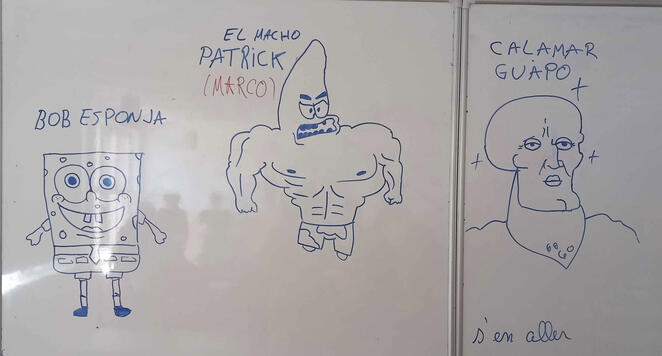 BOB ESPONJA
EL MACHO
PATRICK
(MARCO)
CALAMAR
GUAPO
s'en aller